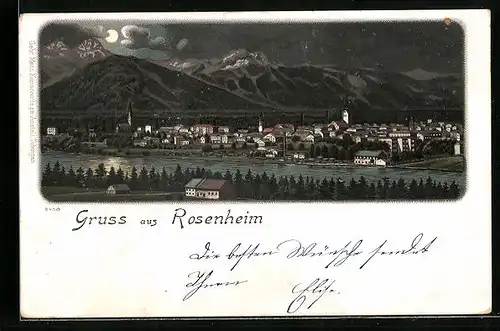 Gruss aus Rosenheim
Die besten Wünsche sendet
Ihnen
Elise.